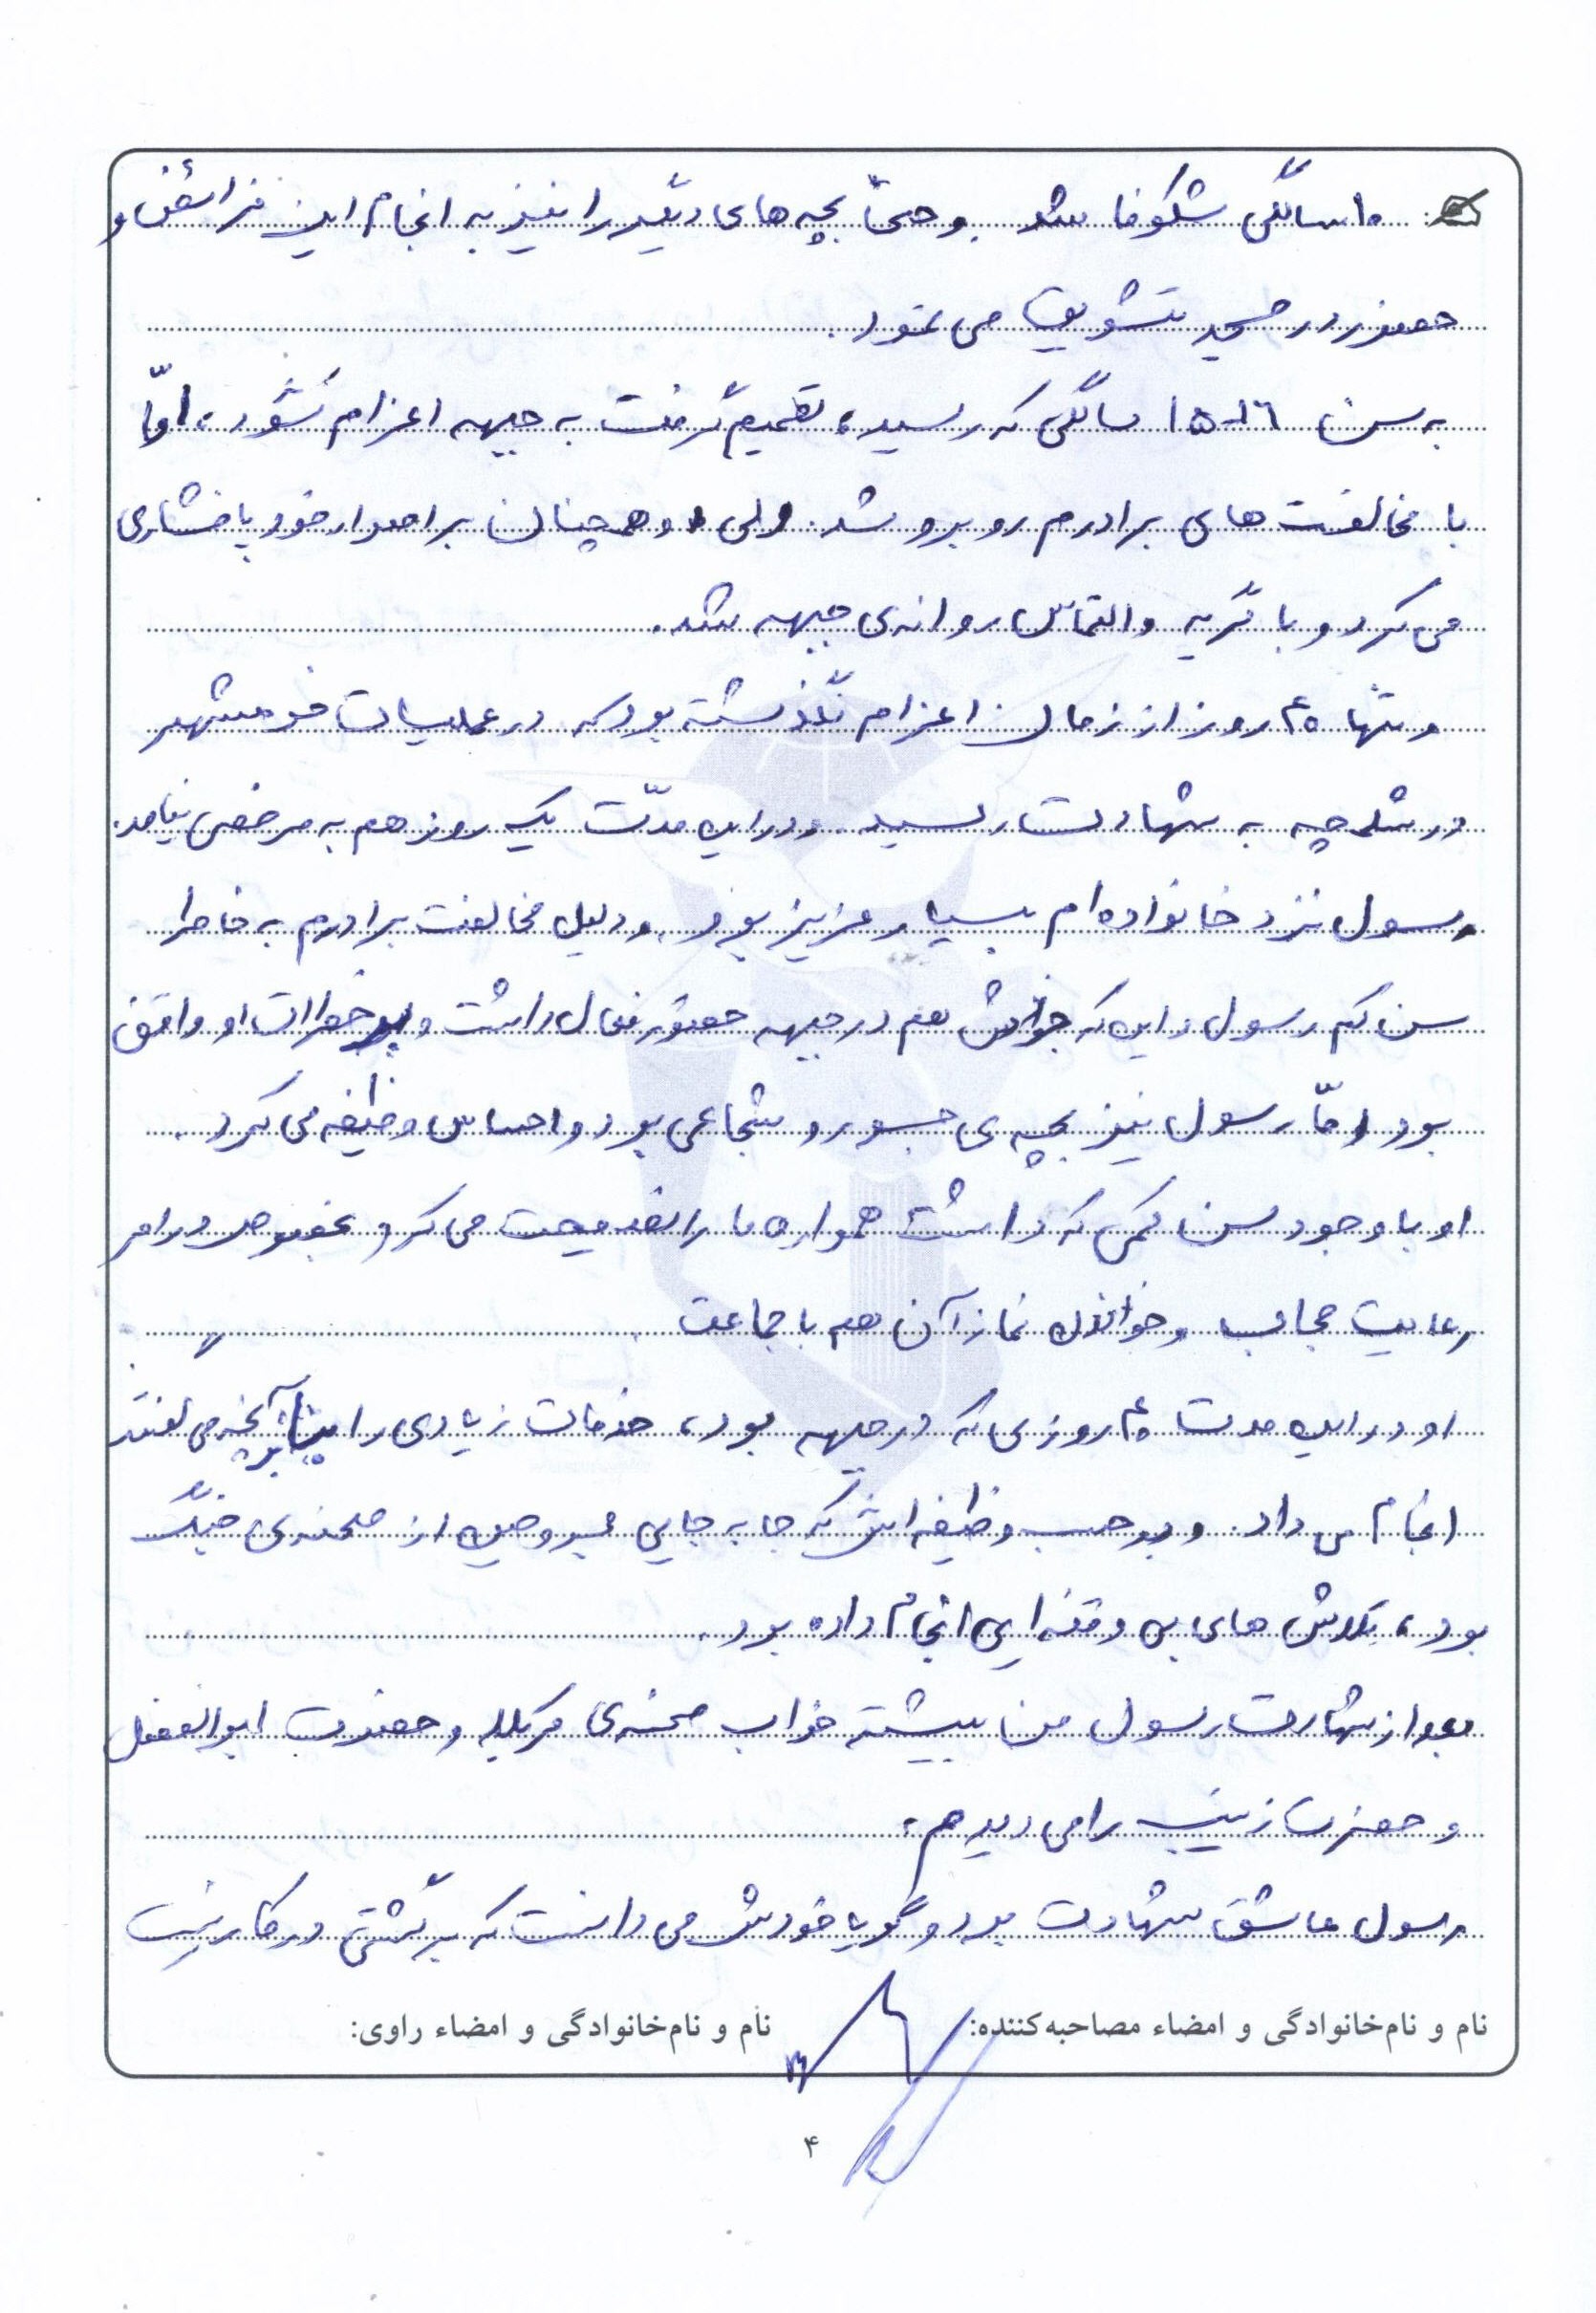 ۱۰ سالگی شکوفا شد و حتیّ بچه های دیگر را نیز به انجام این فرائض و
حضور در مسجد تشویق می نمود.
به سن ۱۶-۱۵ سالگی که رسید، تصمیم گرفت به جبهه اعزام شود، امّا
با مخالفت های برادرم روبرو شد. ولی او همچنان بر اصرار خود پافشاری
می کرد و با گریه و التماس روانه ی جبهه شد.
و تنها ۴۰ روز از زمان اعزام نگذشته بود که در عملیات خرمشهر
در شلمچه به شهادت رسید. و در این مدّت یک روز هم به مرخصی نیامد.
رسول نزد خانواده ام بسیار عزیز بود. و دلیل مخالفت برادرم به خاطر
سن کم رسول و این که خودش هم در جبهه حضور فعال داشت و بر خطرات او واقف
بود امّا رسول نیز بچه ی جسور و شجاعی بود و احساس وظیفه می کرد.
او با وجود سن کمی که داشت همواره ما را نصیحت می کرد بخصوص در امر
رعایت حجاب و خواندن نماز آن هم با جماعت.
او در این مدت ۴۰ روزی که در جبهه بود، خدمات زیادی را بنابر آنچه می گفتند
انجام می داد. و بر حسب وظیفه اش که جا به جایی مجروحین از صحنه ی جنگ
بود، تلاش های بی وقفه ایی انجام داده بود.
بعد از شهادت رسول من بیشتر خواب صحنه ی کربلا و حضرت ابوالفضل
و حضرت زینب را می دیدم.
رسول عاشق شهادت بود و گویا خودش می دانست که برگشتی در کار نیست
نام و نام‌خانوادگی و امضاء مصاحبه‌کننده: نام و نام‌خانوادگی و امضاء راوی:
۴